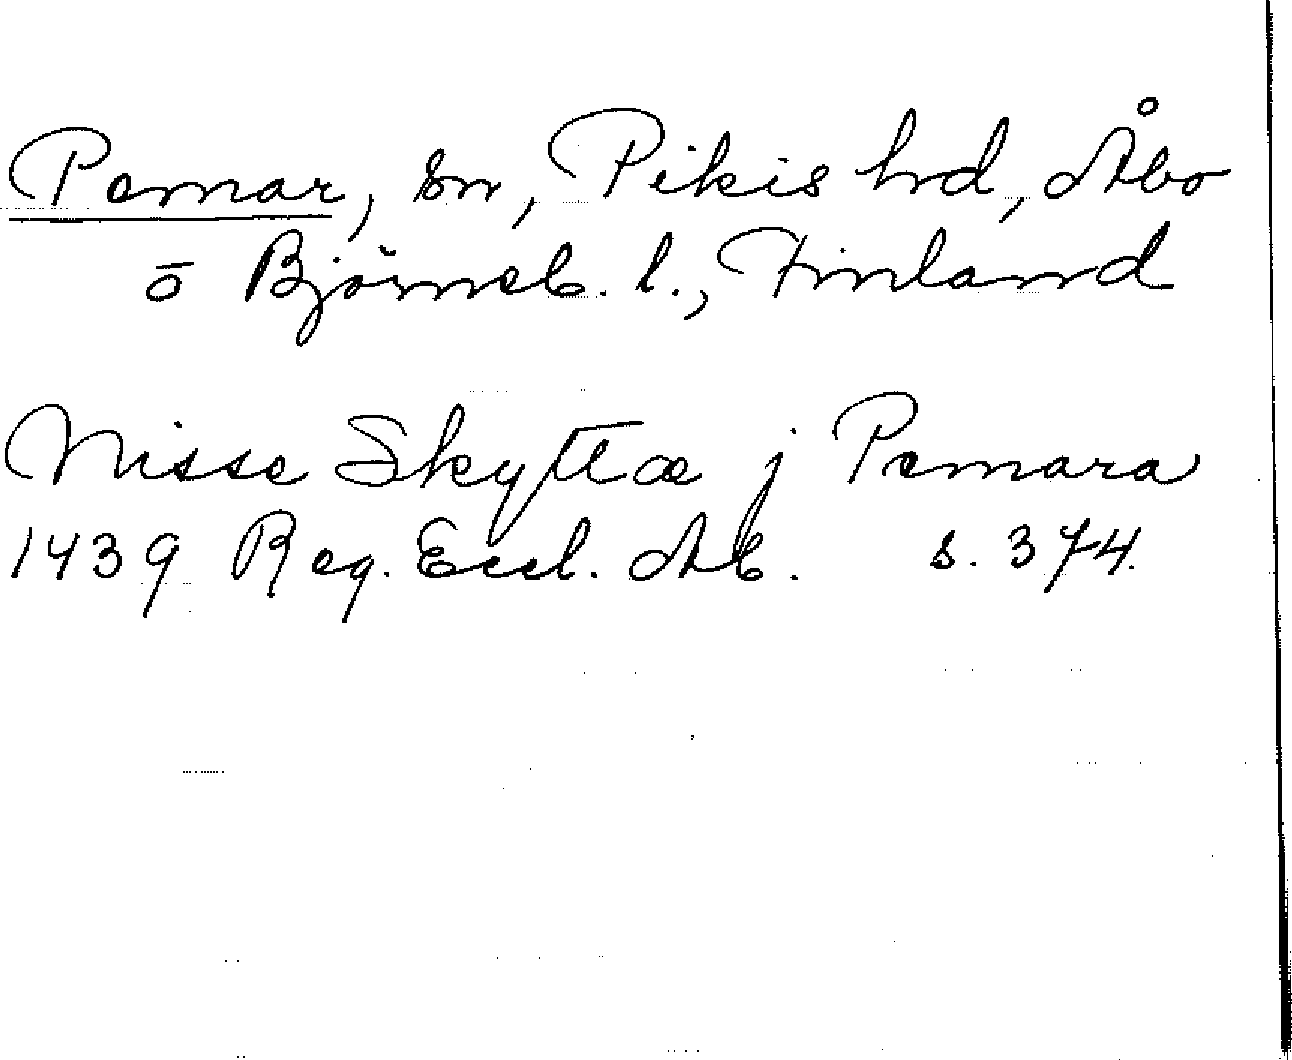 Pemar, sn, Pikis hrd, Åbo
o Björneb. l., Finland
Nisse Skyttæ j Pemara
1439 Reg. Eccl. Ab. s. 374.